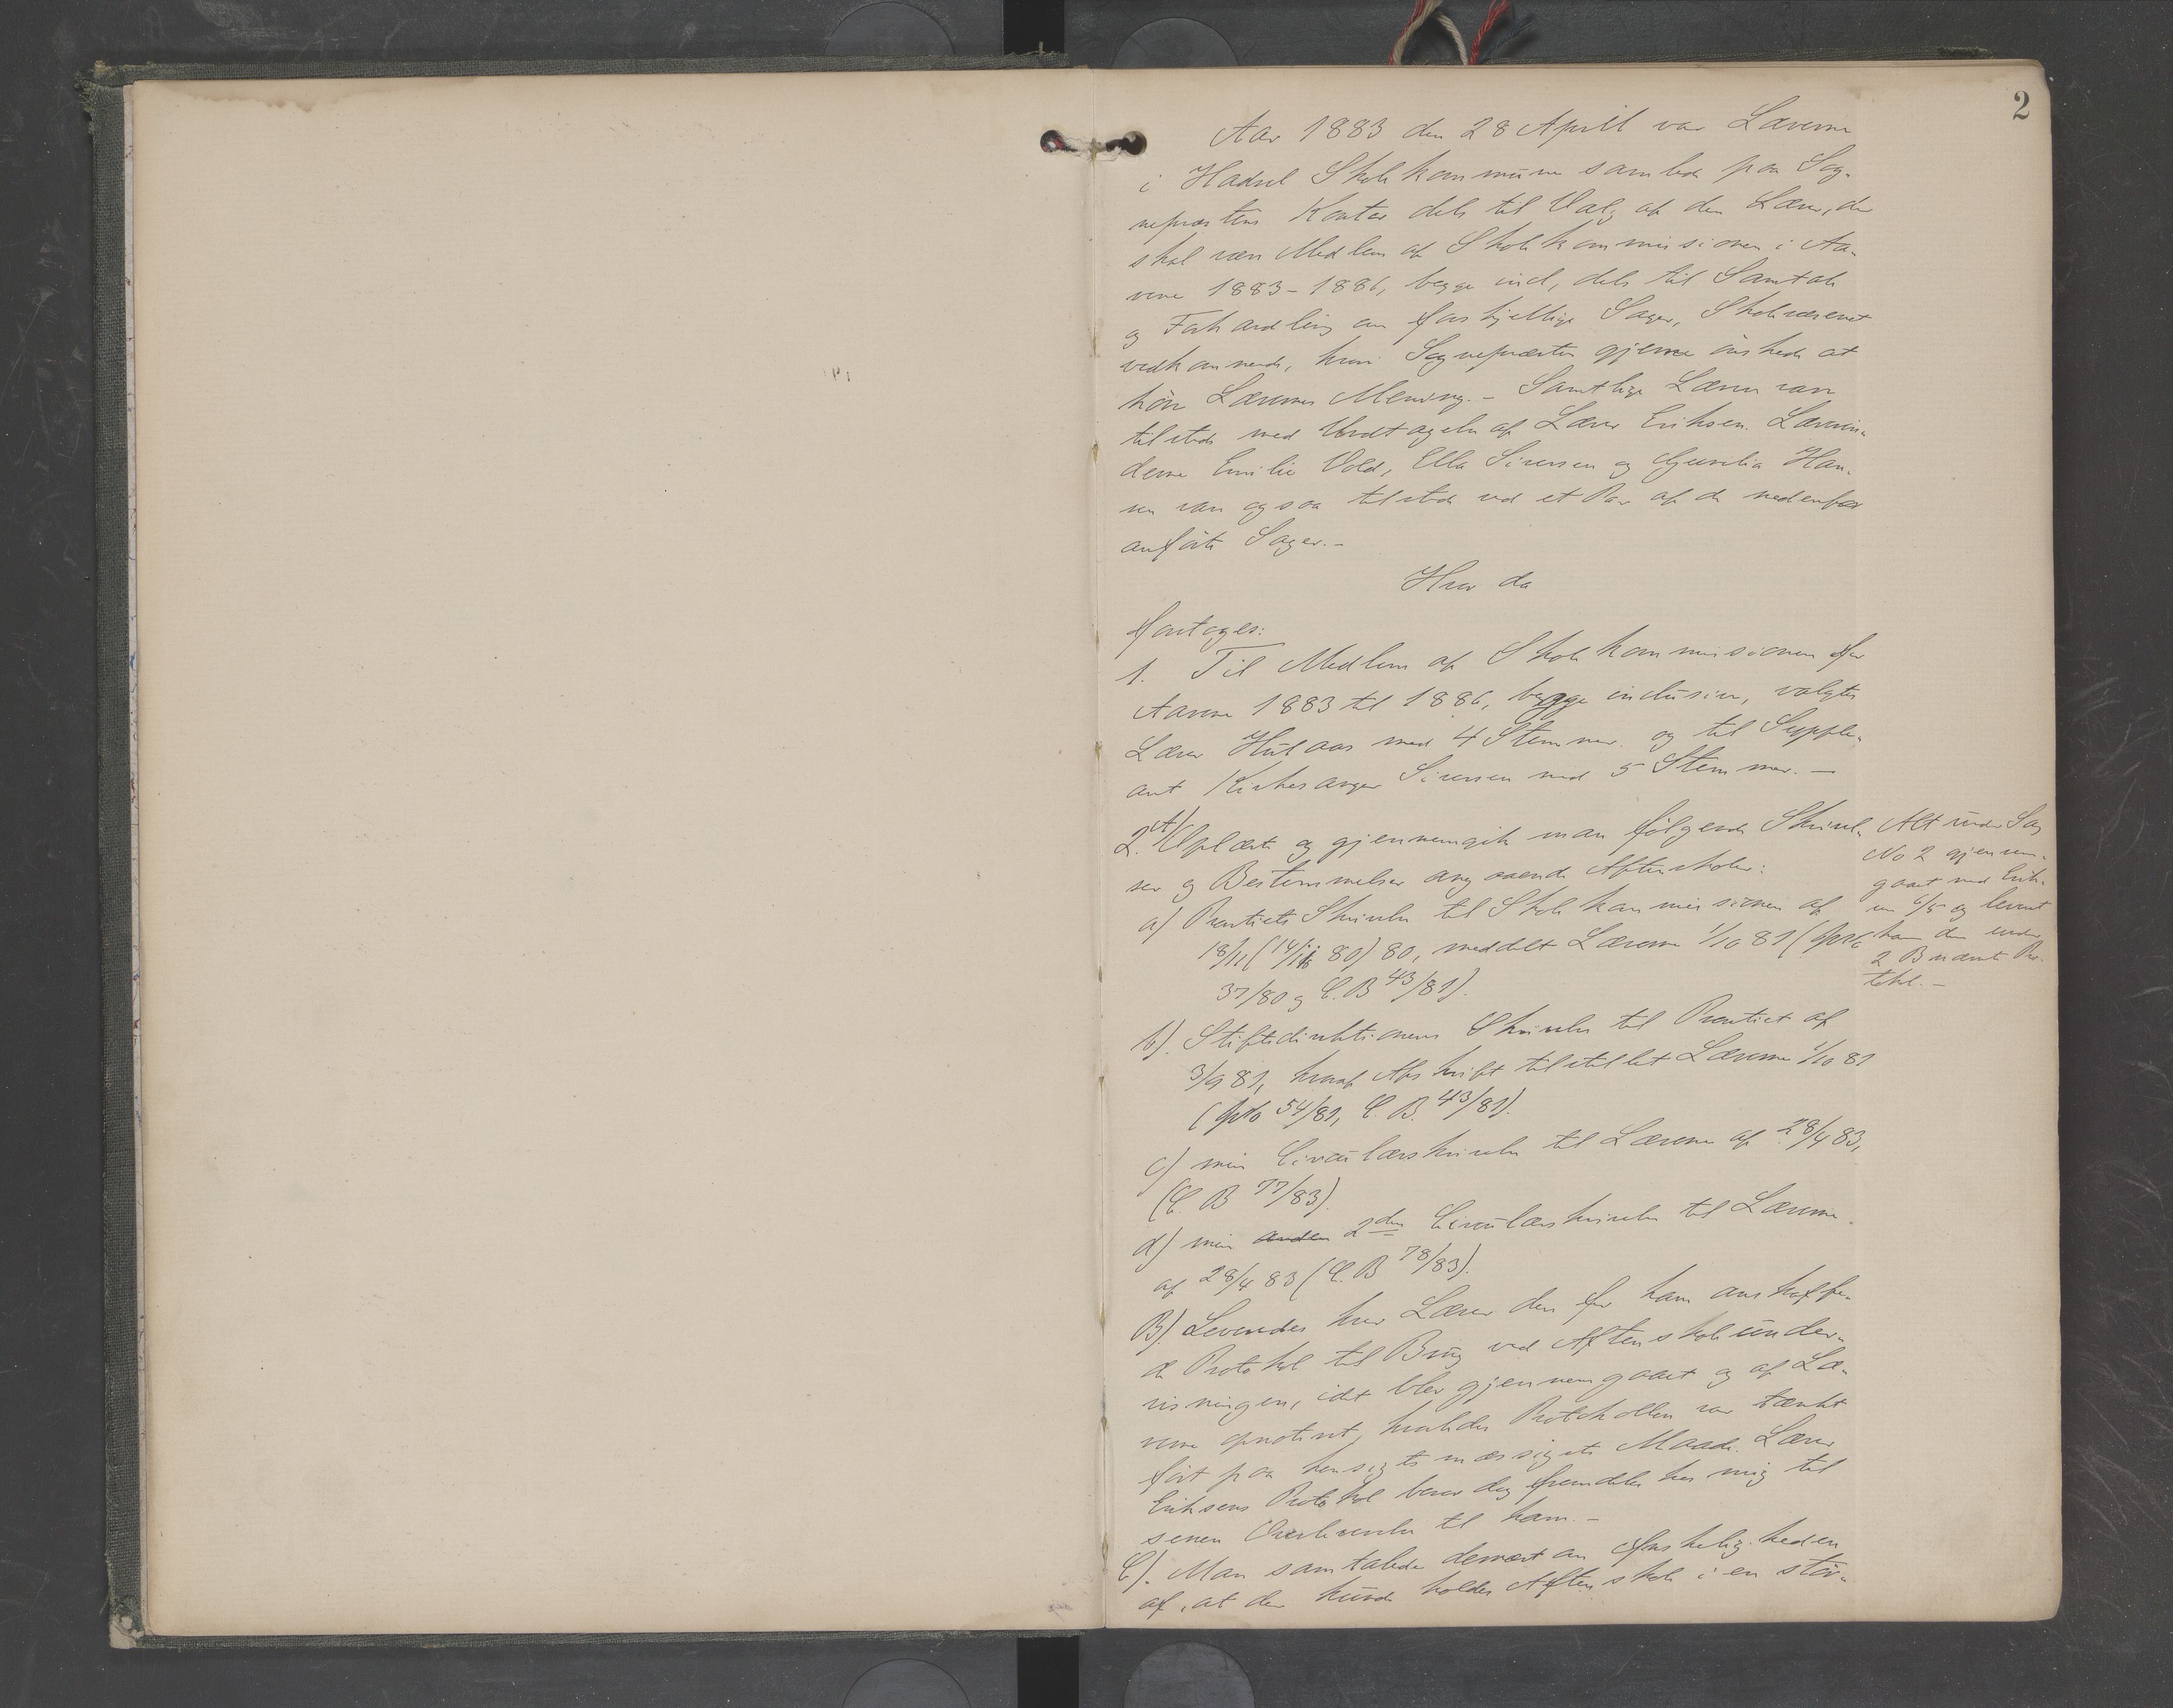 2
Aar 1883 den 28 April var Lærerne
i Hadsel Skolekommune samlede paa Sog-
nepræstens Kontor dels til Valg af den Lærer, der
skal være Medlem af Skolekommissionen i Aa-
rene 1883-1886, begge incl, dels til Samtale
og Forhandling om forskjellige Sager, Skolevæsenet
vedkommende, hvori Sognepræsten gjerne ønskede at
høre Lærernes Mening. - Samtlige Lærere vare
tilstede med Undtagelse af Lærer Eriksen. Lærerin-
derne Emilie Vold, Ella Siversen og Han-
sen vare ogsaa tilstede ved et Par af de nedenfor
anførte Sager. -
Hvor da
foretoges:
1. Til Medlem af Skolekommissionen for
Aarene 1883 til 1886, begge inclusive, valgtes
Lærer Hulaas med 4 Stemmer og til Supple-
ant Kirkesanger Siversen med 5 Stemmer. -
2. A) Oplæste og gjennemgik man følgende Skrivel-
ser og Bestemmelser angaaende Aftenskoler:
a) Provstiets Skrivelse til Skolekommissionen af
18/11 (14/11 80) 80, meddelt Lærerne 1/10 81 (
37/80 og C. B 43/81).
b). Stiftsdirektionens Skrivelse til Provstiet af
3/9 81, hvoraf Afskrift tilstillet Lærerne 1/10 81
( 54/81, C. B. 43/81).
c) min Circulærskrivelse til Lærerne af 28/4 83,
(C. B 77/83).
d) min anden 2den Circulærskrivelse til Lærerne
af 28/4 83 (C. B 78/83).
B) Leveredes hver Lærer den for ham anskaffe-
de Protokol til Brug ved Aftenskoleunder-
visningen, idet blev gjennemgaaet og af Læ-
rerne opnoteret, hvorledes Protokollen var tænkt
ført paa hensigtsmæssigste Maade. Lærer
Eriksens Protokol beror dog fremdeles hos mig til
senere Overlevelse til ham. -
C). Man samtalede dernæst om Ønskeligheden
af, at der kunde holdes Aftenskole i en stør-
Alt under Sag
No 2 gjennem-
gaaet med Erik-
sen 6/5 og leveret
ham den under
2 B nævnte Pro-
tokol. -